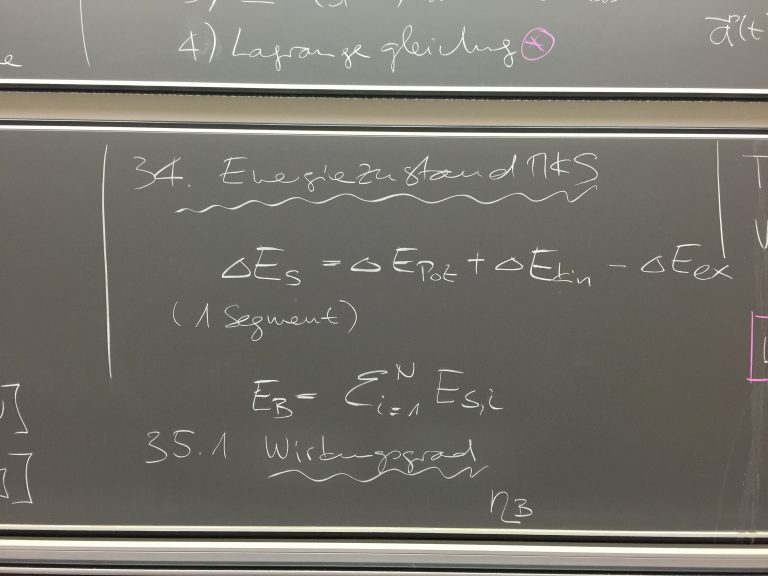 4) Lagrange gleichung *
d(t
34. Energiezustand MKS
ΔE_S = ΔE_Pot + ΔE_kin - ΔE_ex
(1 Segment)
E_B = Σ_{i=1}^{N} E_{S,i}
35.1 Wirkungsgrad
η_B